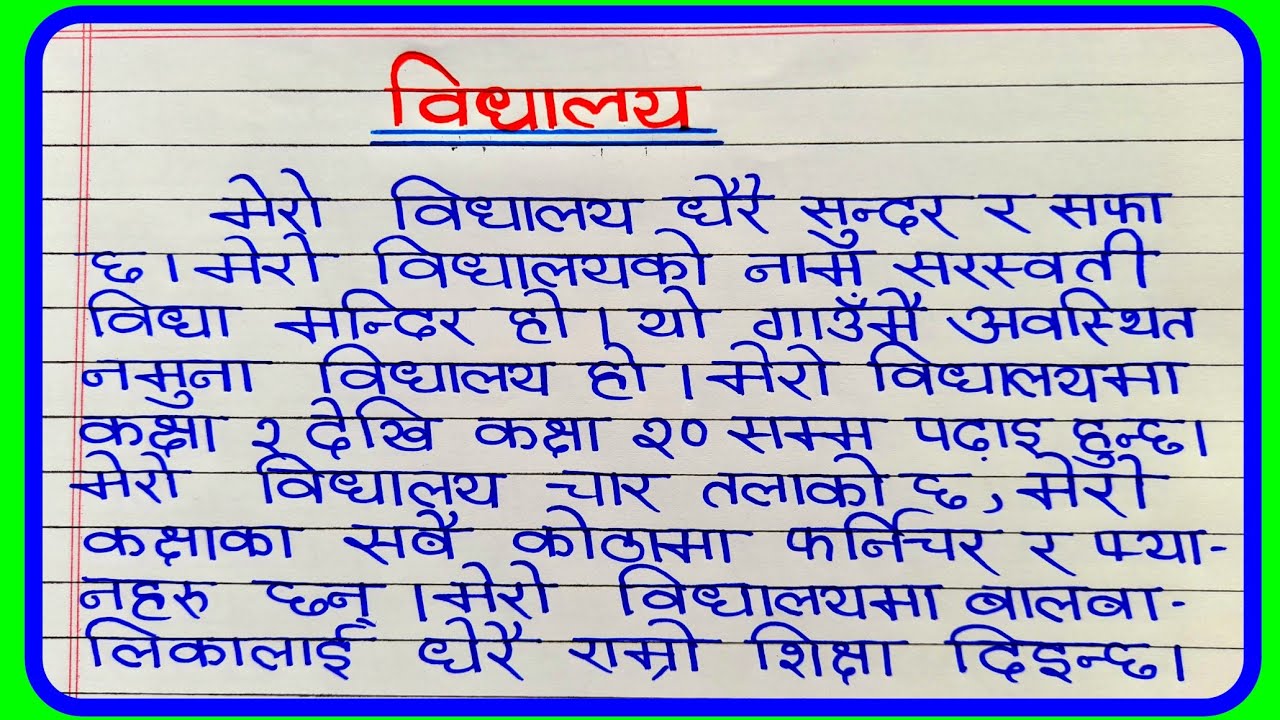 विधालय
मेरो विधालय धेरै सुन्दर र सफा
छ। मेरो विधालयको नाम सरस्वती
विधा मन्दिर हो। यो गाउँमै अवस्थित
नमुना विधालय हो। मेरो विधालयमा
कक्षा १ देखि कक्षा १० सम्म पढ़ाइ हुन्छ।
मेरो विधालय चार तलाको छ, मेरो
कक्षाका सबै कोठामा फर्निचर र प्या-
नहरु छन्। मेरो विधालयमा बालबा-
लिकालाई धेरै राम्रो शिक्षा दिइन्छ।